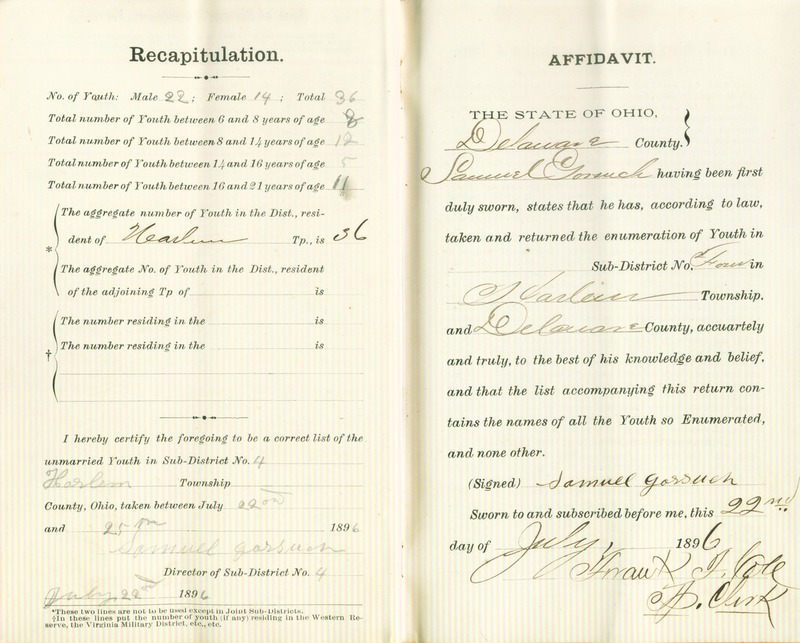 Recapitulation.
No. of Youth: Male 22; Female 14; Total 36
Total number of Youth between 6 and 8 years of age 8
Total number of Youth between 8 and 14 years of age 12
Total number of Youth between 14 and 16 years of age 5
Total number of Youth between 16 and 21 years of age 11
The aggregate number of Youth in the Dist., resi-
* dent of Harlem Tp., is 36
The aggregate No. of Youth in the Dist., resident
of the adjoining Tp of is
The number residing in the is
† The number residing in the is
I hereby certify the foregoing to be a correct list of the
unmarried Youth in Sub-District No. 4
Harlem Township
County, Ohio, taken between July 22nd
and 25th 1896
Samuel Gorsuch
Director of Sub-District No. 4
July 22nd 1896
*These two lines are not to be used except in Joint Sub-Districts.
†In these lines put the number of youth (if any) residing in the Western Re-
serve, the Virginia Military District, etc., etc.
AFFIDAVIT.
THE STATE OF OHIO,
Delaware County.
Samuel Gorsuch having been first
duly sworn, states that he has, according to law,
taken and returned the enumeration of Youth in
Sub-District No. Four in
Harlem Township.
and Delaware County, accuartely
and truly, to the best of his knowledge and belief,
and that the list accompanying this return con-
tains the names of all the Youth so Enumerated,
and none other.
(Signed) Samuel Gorsuch
Sworn to and subscribed before me, this 22nd
day of July, 1896
Frank T. Cole
Clerk